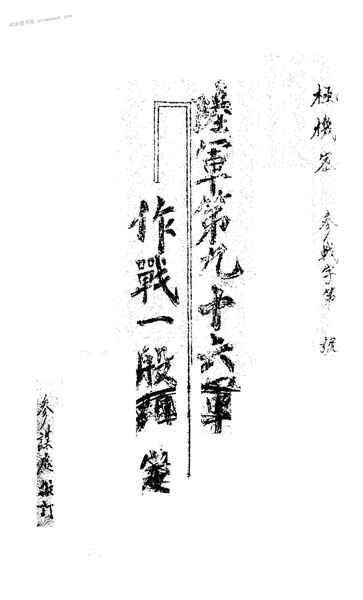 極機密 參戰字第 號
陸軍第九十六軍
作戰一般
參謀處擬訂